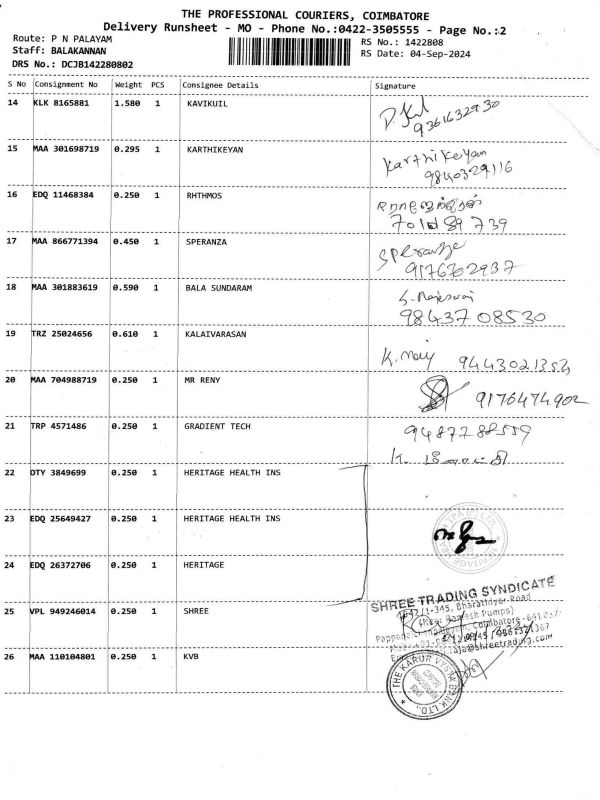 THE PROFESSIONAL COURIERS, COIMBATORE
Delivery Runsheet - MO - Phone No.:0422-3505555 - Page No.:2
Route: P N PALAYAM
RS No.: 1422808
Staff: BALAKANNAN
RS Date: 04-Sep-2024
DRS No.: DCJB142280802
S No Consignment No Weight PCS Consignee Details Signature
14 KLK 8165881 1.580 1 KAVIKUIL
9361632930
15 MAA 301698719 0.295 1 KARTHIKEYAN Karthikeyan
9840329116
16 EDQ 11468384 0.250 1 RHTHMOS
17 MAA 866771394 0.450 1 SPERANZA Speranza
9176702937
18 MAA 301883619 0.590 1 BALA SUNDARAM
98437 08530
19 TRZ 25024656 0.610 1 KALAIVARASAN
20 MAA 704988719 0.250 1 MR RENY 9176474902
21 TRP 4571486 0.250 1 GRADIENT TECH
K.
22 DTY 3849699 0.250 1 HERITAGE HEALTH INS
23 EDQ 25649427 0.250 1 HERITAGE HEALTH INS
24 EDQ 26372706 0.250 1 HERITAGE
SHREE TRADING SYNDICATE
25 VPL 949246014 0.250 1 SHREE
26 MAA 110104801 0.250 1 KVB
THE KARUR VYSYA BANK LTD.